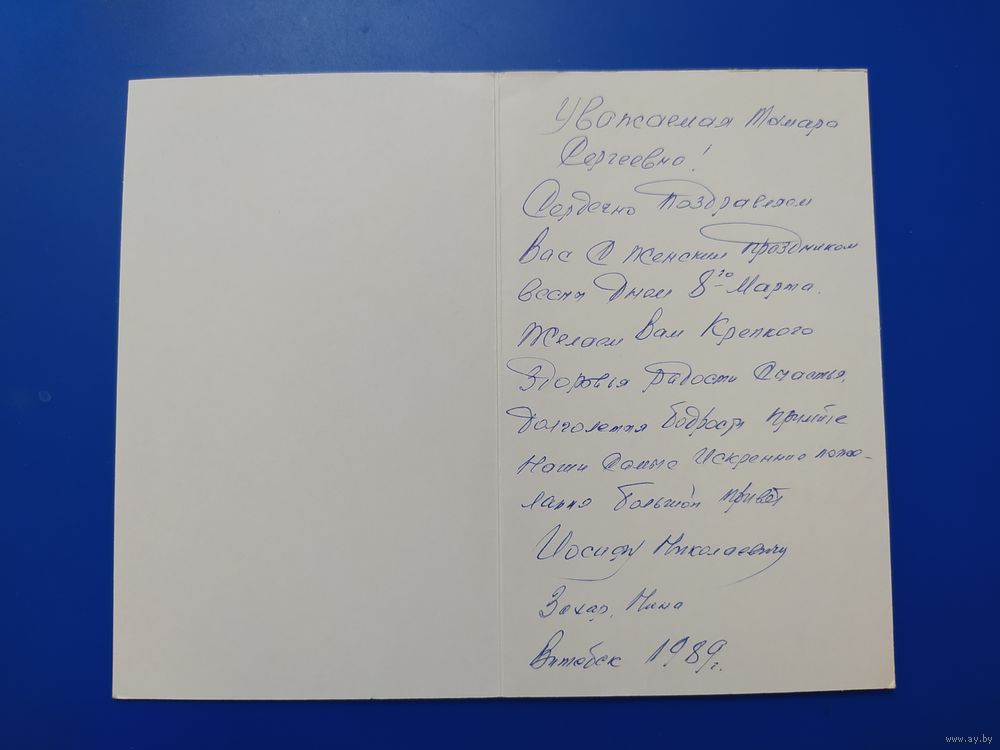 Уважаемая Тамара
Сергеевна!
Сердечно Поздравляем
Вас С Женским праздником
весны Днем 8-го Марта.
Желаем Вам Крепкого
Здоровья Радости Счастья,
Долголетия Бодрости примите
Наши Самые Искренние поже-
лания Большой привет
Иосифу Николаевичу
Захар, Нина
Витебск 1989г.
www.ay.by